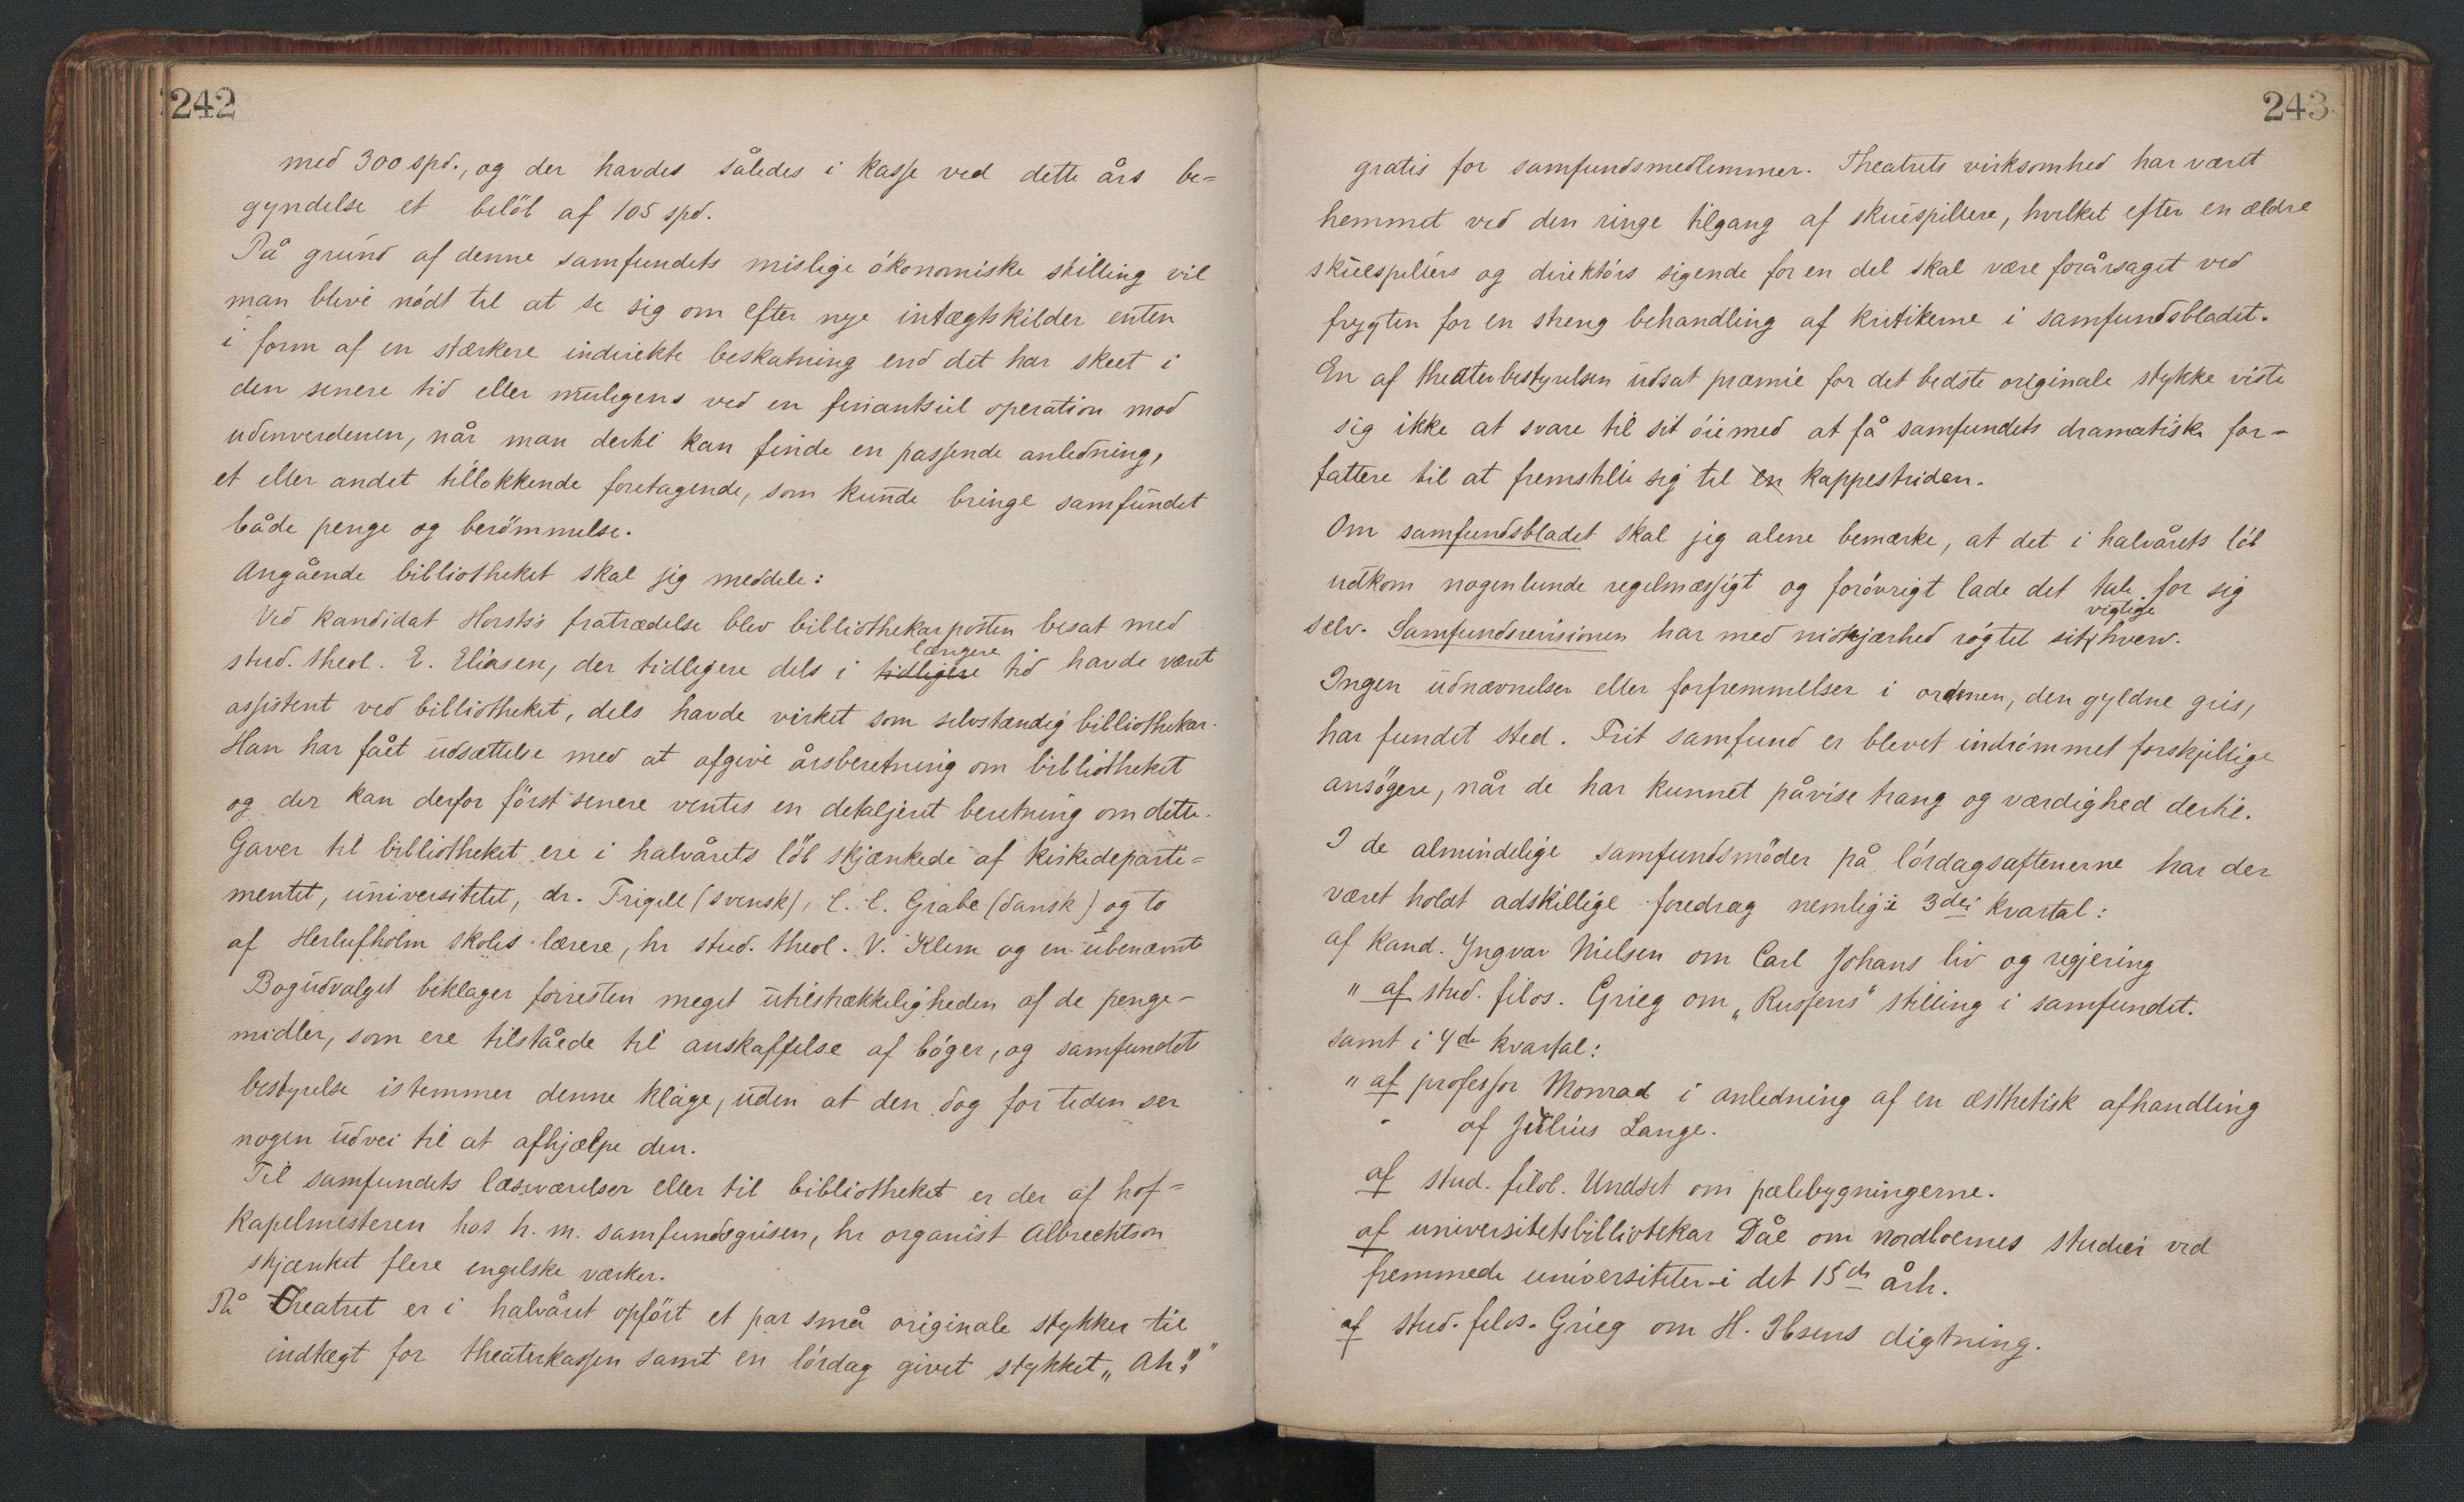 242
med 300 spd., og der havdes således i kasse ved dette års be=
gyndelse et belöb af 105 spd.
På grund af denne samfundets mislige ökonomiske stilling vil
man blive nödt til at se sig om efter nye intægtskilder enten
i form af en stærkere indirekte beskatning end det har skeet i
den senere tid eller muligens ved en finantsiel operation mod
udenverdenen, når man dertil kan finde en passende anledning,
et eller andet tillokkende foretagende, som kunde bringe samfundet
både penge og berömmelse.
Angående bibliotheket skal jeg meddele:
Ved kandidat Horsts's fratrædelse blev bibliothekarposten besat med
stud. theol. E. Eliasen, der tidligere dels i tidligere længere tid havde været
assistent ved bibliotheket, dels havde virket som selvstændig bibliothekar.
Han har fået udsættelse med at afgive årsberetning om bibliotheket
og der kan derfor först senere ventes en detaljeret beretning om dette.
Gaver til bibliotheket ere i halvårets löb skjænkede af kirkedeparte=
mentet, universitetet, dr. Frigell (svensk), C. C. Grabe (dansk) og to
af Herlufholm skoles lærere, hr stud. theol. V. Klem og en ubenævnt
Bogudvalget beklager forresten meget utilstrækkeligheden af de penge-
midler, som ere tilståede til anskaffelse af böger, og samfundets
bestyrelse istemmer denne klage, uden at den dog for tiden ser
nogen udvei til at afhjælpe den.
Til samfundets læseværelser eller til bibliotheket er der af hof=
kapelmesteren hos h. m. samfundsgrisen, hr organist Albrechtson
skjænket flere engelske værker.
På Theatret er i halvåret opfört et par små originale stykker til
indtægt for theaterkassen samt en lördag givet stykket „Ah!"
243
gratis for samfundsmedlemmer. Theatrets virksomhed har været
hemmet ved den ringe tilgang af skuespillere, hvilket efter en ældre
skuespillers og direktörs sigende for en del skal være forårsaget ved
frygten for en streng behandling af kritikerne i samfundsbladet.
En af theaterbestyrelsen udsat præmie for det bedste originale stykke viste
sig ikke at svare til sit öiemed at få samfundets dramatiske for-
fattere til at fremstille sig til en kappestriden.
Om samfundsbladet skal jeg alene bemærke, at det i halvårets löb
udkom nogenlunde regelmæssigt og forövrigt lade det tale for sig
selv. Samfundsrevisionen har med nidkjærhed rögtet sit vigtige hverv.
Ingen udnævnelser eller forfremmelser i ordenen, den gyldne gris,
har fundet sted. Frit samfund er blevet indrömmet forskjellige
ansögere, når de har kunnet påvise trang og værdighed dertil.
I de almindelige samfundsmöder på lördagsaftenerne har der
været holdt adskillige foredrag nemlig i 3die kvartal:
af kand. Yngvar Nielsen om Carl Johans liv og regjering
" af stud. filos. Grieg om „Russens" stilling i samfundet.
samt i 4de kvartal:
" af professor Monrad i anledning af en æsthetisk afhandling
af Julius Lange.
af stud. filol. Undset om pælebygningerne.
af universitetsbibliotekar Dåe om nordboernes studier ved
fremmede universiteter i det 15de årh.
af stud. filos. Grieg om H. Ibsens digtning.